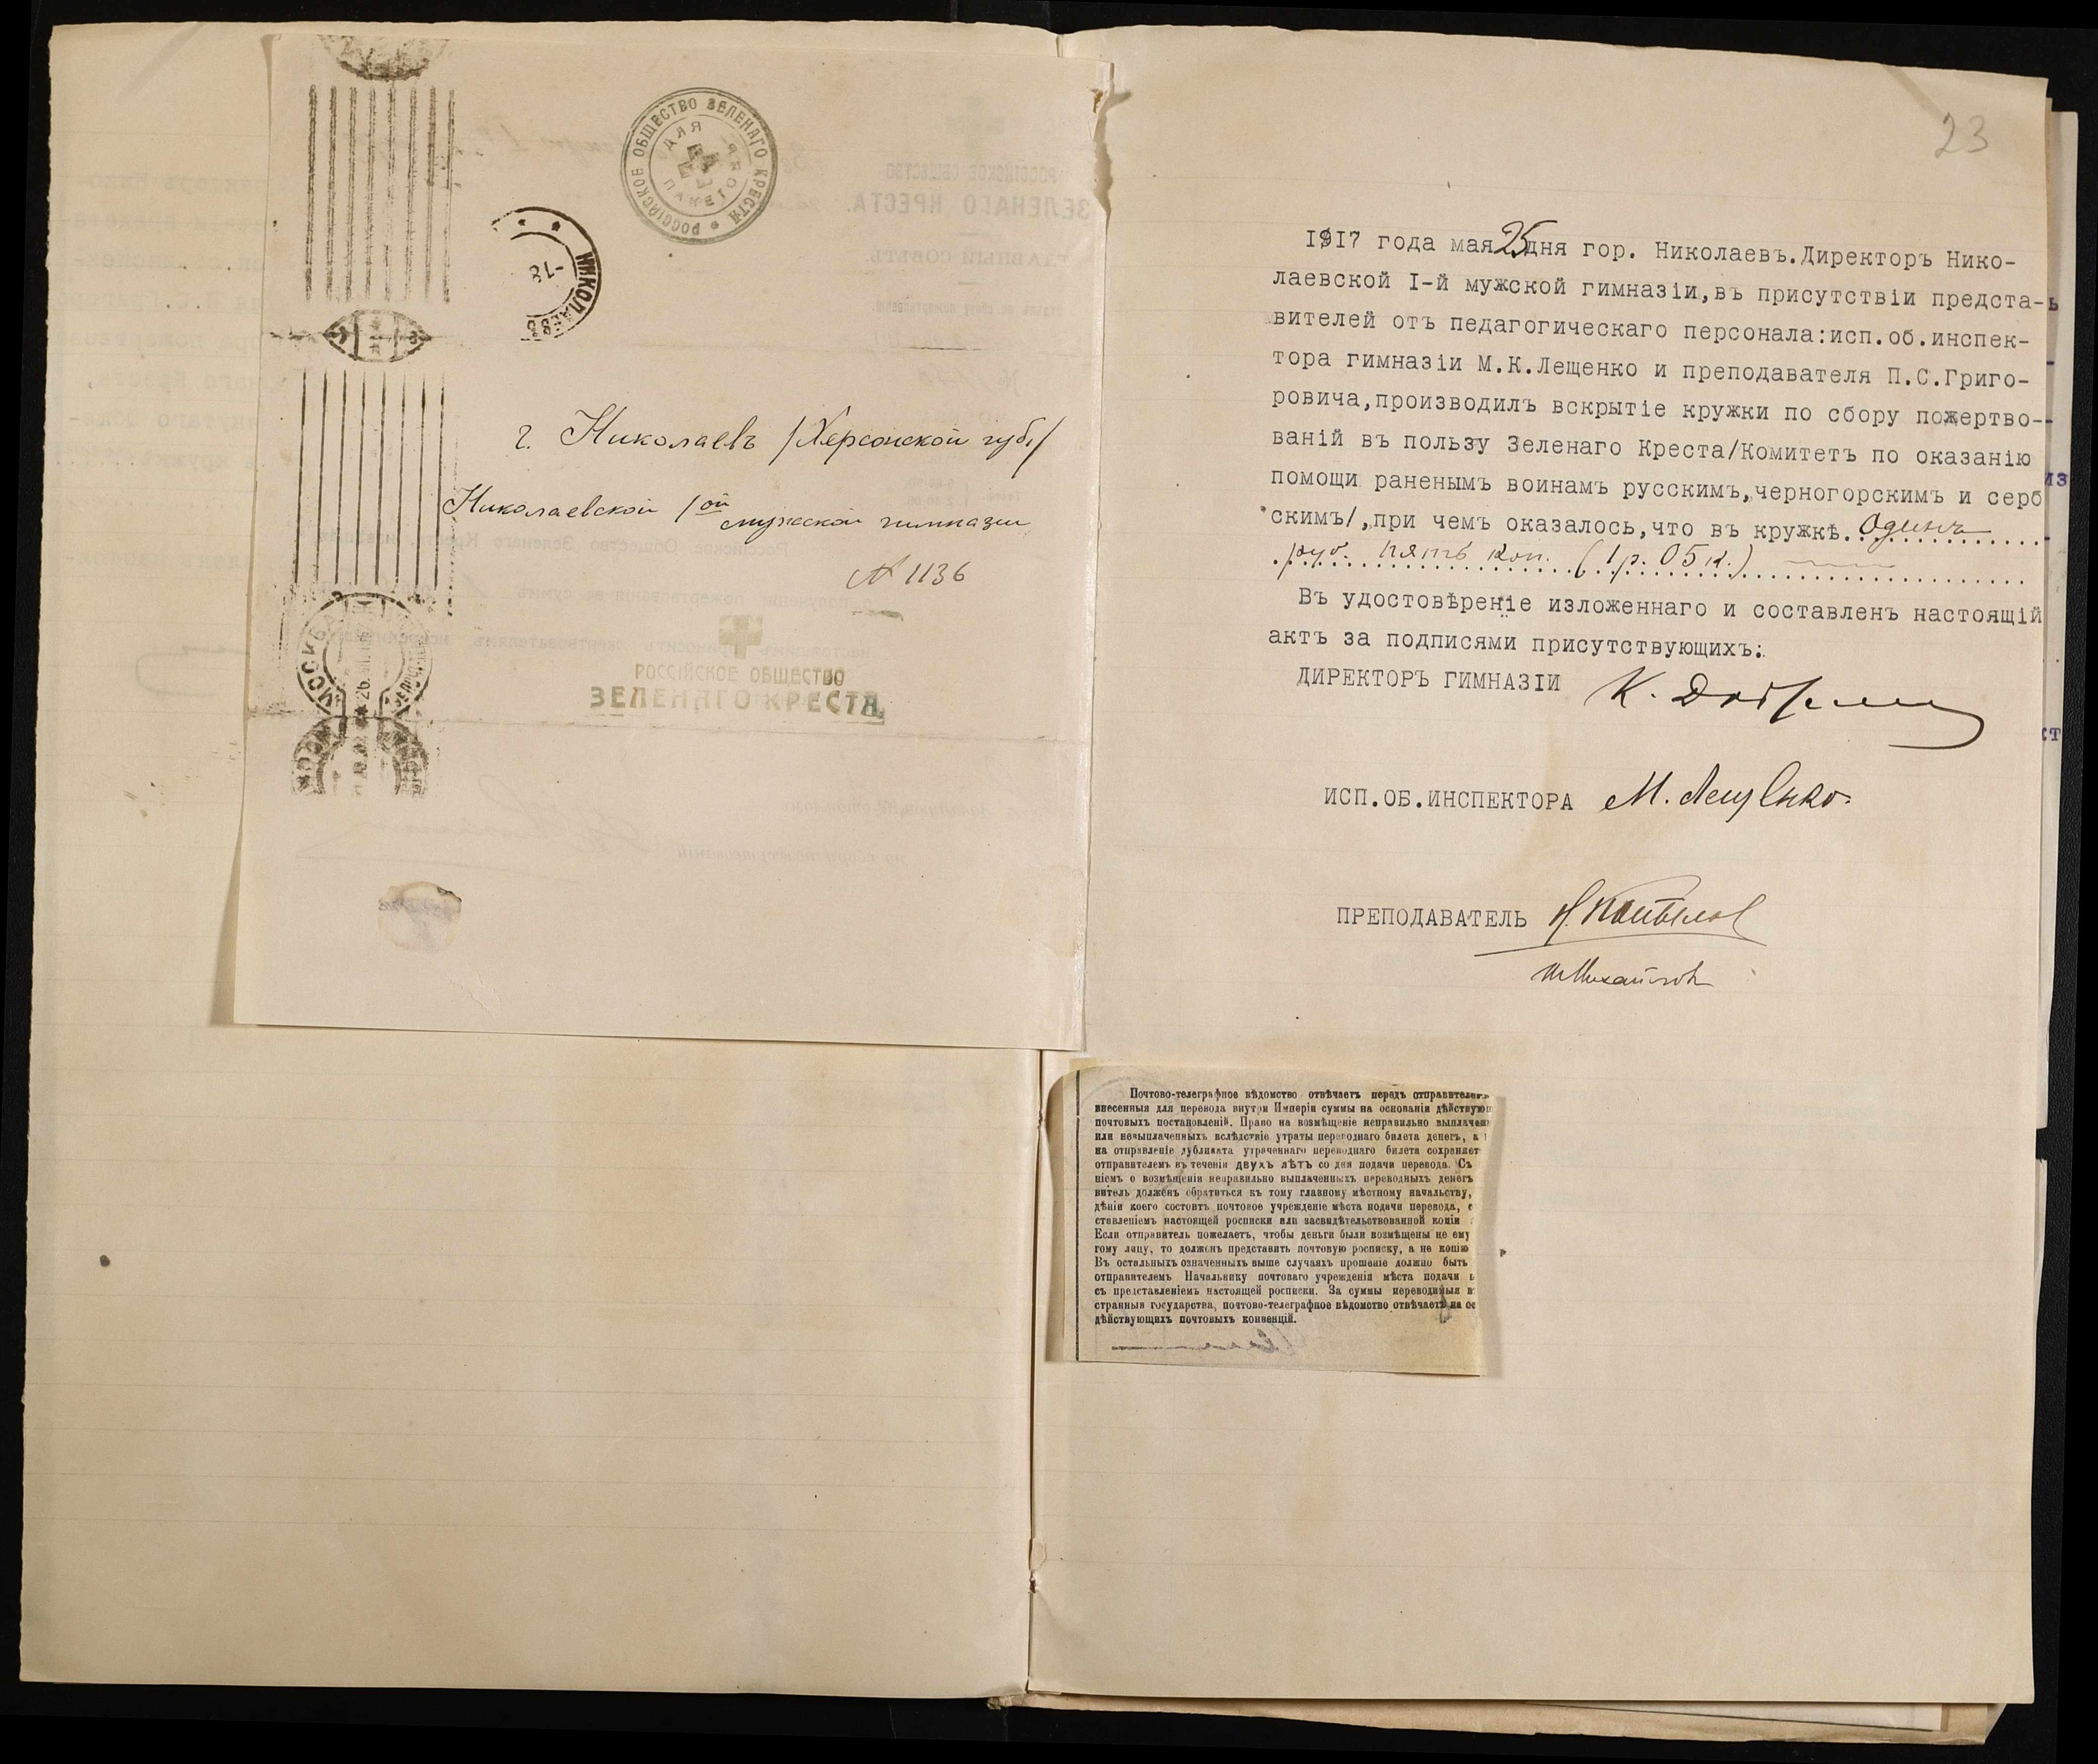 РОССІЙСКОЕ ОБЩЕСТВО ЗЕЛЕНАГО КРЕСТА
ДЛЯ ПАКЕТОВЪ
НИКОЛАЕВЪ
г. Николаевъ /Херсонской губ/
Николаевской 1ой мужской гимназии
№ 1136
МОСКВА
РОССІЙСКОЕ ОБЩЕСТВО
ЗЕЛЕНАГО КРЕСТА.
23
1917 года мая 25 дня гор. Николаевъ.Директоръ Нико-
лаевской I-й мужской гимназіи,въ присутствіи предста-
вителей отъ педагогическаго персонала:исп.об.инспек-
тора гимназіи М.К.Лещенко и преподавателя П.С.Григо-
ровича,производилъ вскрытіе кружки по сбору пожертво-
ваній въ пользу Зеленаго Креста/Комитетъ по оказанію
помощи раненымъ воинамъ русскимъ,черногорскимъ и серб
скимъ/,при чемъ оказалось,что въ кружкѣ. Одинъ
руб. пять коп. (1 р. 05 к.)
Въ удостовѣреніе изложеннаго и составленъ настоящій
актъ за подписями присутствующихъ:
ДИРЕКТОРЪ ГИМНАЗІИ К.
ИСП.ОБ.ИНСПЕКТОРА М. Лещенко
ПРЕПОДАВАТЕЛЬ
Почтово-телеграфное вѣдомство отвѣчаетъ передъ
внесенныя для перевода внутри Имперіи суммы на основаніи
почтовыхъ постановленій. Право на возмѣщеніе неправильно
или невыплаченныхъ вслѣдствіе утраты переводнаго билета денегъ, а
на отправленіе дубликата утраченнаго переводнаго билета
отправителемъ въ теченіи двухъ лѣтъ со дня подачи перевода. Съ
ніемъ о возмѣщеніи неправильно выплаченныхъ переводныхъ денегъ
витель долженъ обратиться къ тому главному мѣстному начальству,
дѣніи коего состоитъ почтовое учрежденіе мѣста подачи перевода, с
ставленіемъ настоящей росписки или засвидѣтельствованной копіи
Если отправитель пожелаетъ, чтобы деньги были возмѣщены не ему
гому лицу, то долженъ представить почтовую росписку, а не копію
Въ остальныхъ означенныхъ выше случаяхъ прошеніе должно быть
отправителемъ Начальнику почтоваго учрежденія мѣста подачи
съ представленіемъ настоящей росписки. За суммы переводимыя
странныя государства, почтово-телеграфное вѣдомство отвѣчаетъ на ос
дѣйствующихъ почтовыхъ конвенцій.